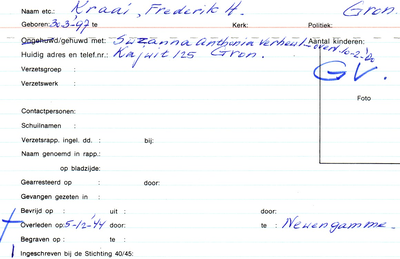 Naam etc.: Kraai, Frederik H. Gron.
Geboren: 30-3-'97 te Kerk: Politiek:
Ongehuwd/gehuwd met: Suzanna Anthonia Verheul - overl. 10-2-'80 Aantal kinderen:
Huidig adres en telef.nr.: Kajuit 125 Gron.
G.V.
Verzetsgroep :
Verzetswerk :
Foto
Contactpersonen:
Schuilnaam :
Verzetsrapp. ingel. dd. : bij:
Naam genoemd in rapp.:
op bladzijde:
Gearresteerd op : door:
Gevangen gezeten in :
Bevrijd op : uit : door:
Overleden op: 5-12-'44 door: te : Neuengamme.
Begraven op : te :
Ingeschreven bij de Stichting 40/45: